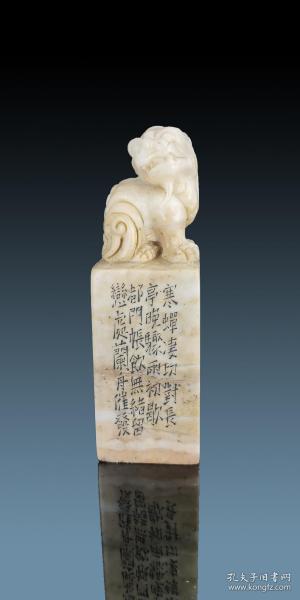 寒蟬凄切對長
亭晚驟雨初歇
都門帳飲無緒留
戀處蘭舟催發
孔夫子旧书网